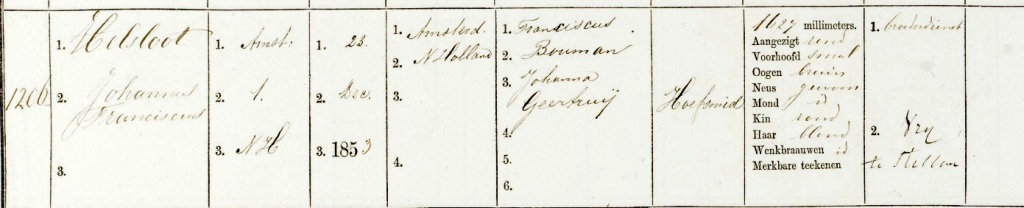 1206
1. Helsloot
2. Johannes
Franciscus
3.
1. Amst.
2. 1.
3. N H
1. 23.
2. Dec.
3. 1853
1. Amsterd.
2. N Holland
3.
4.
1. Franciscus
2. Bouman
3. Johanna
Geertruij
4.
5.
6.
Hoefsmid
1627 millimeters.
Aangezigt rond
Voorhoofd smal
Oogen bruin
Neus gewoon
Mond id
Kin rond
Haar blond
Wenkbraauwen id
Merkbare teekenen
1. broederdienst
2. Vry
te stellen